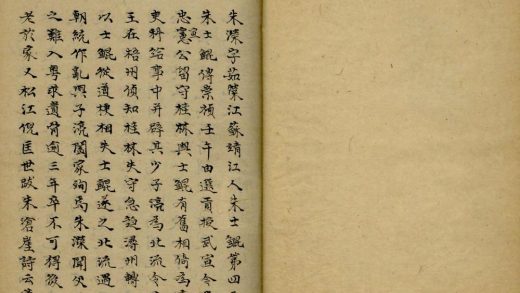 朱瀠字茹瀠江蘇靖江人朱士鯤第四
朱士鯤傳崇禎壬午由選貢授武宣令
忠宣公留守桂林與士鯤有舊相倚
吏科給事中并辟其少子瀠為北流令
王在梧州偵知桂林失守急趨潯州轉
以士鯤從道梗相失士鯤遂之北流遇
朝統作亂與子流闔家殉焉朱瀠聞
之難入粤求遺骨逾三年卒不可得
老於家又松江倪匡世跋朱滄崖詩云